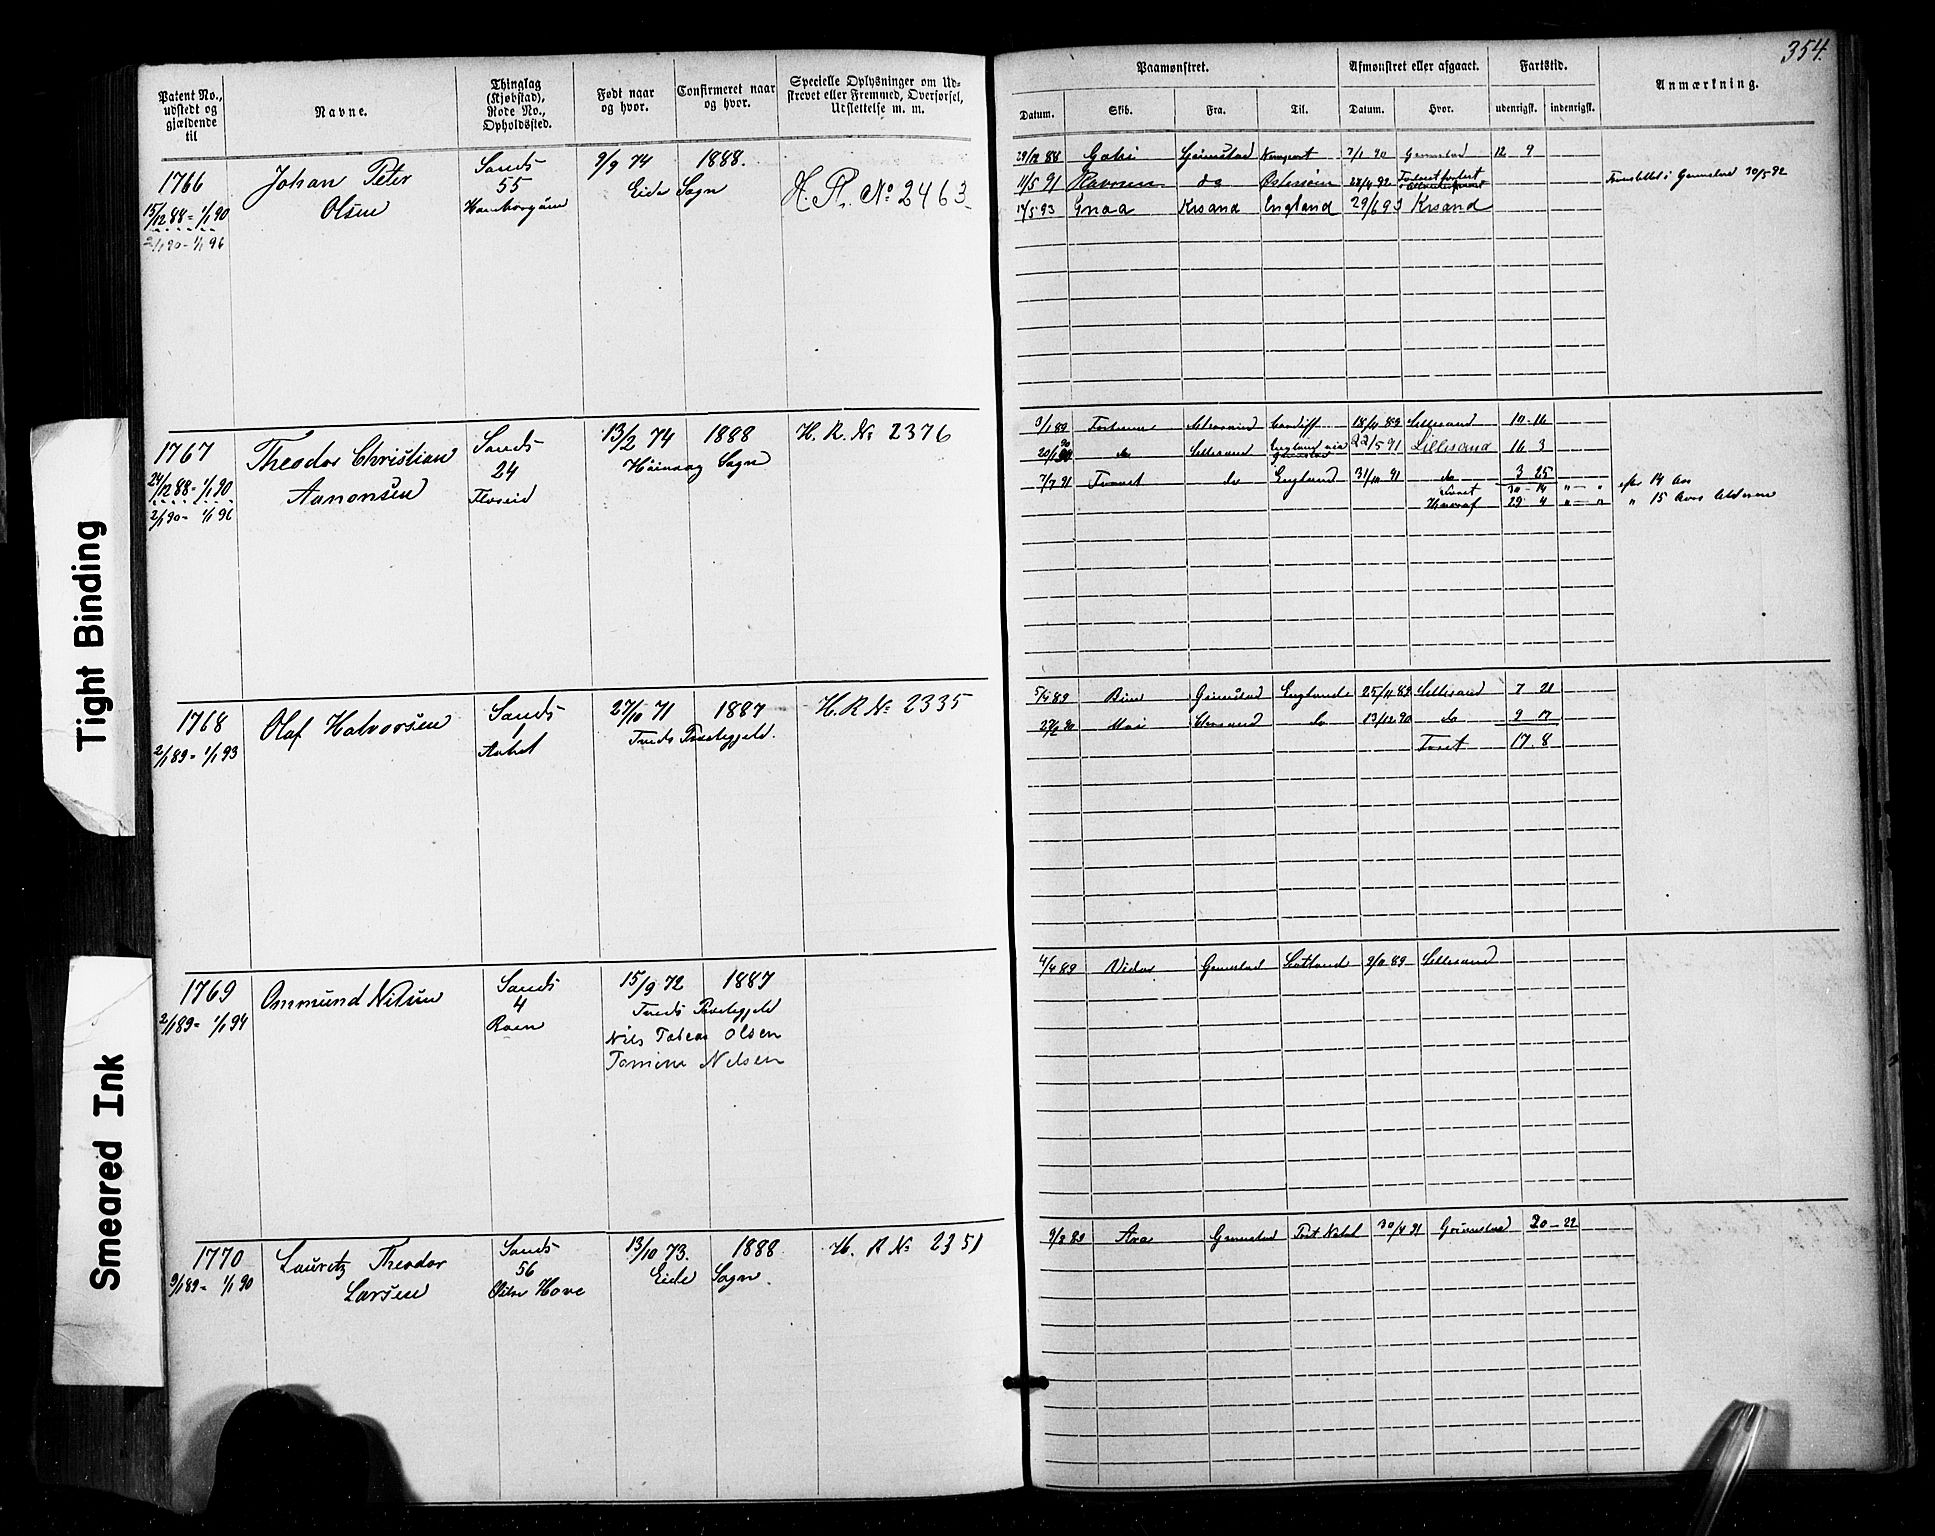 354.
Patent No., udstedt og gjældende til
Navne.
Thinglag (Kjøbstad), Rode No., Opholdssted.
Født naar og hvor.
Confirmeret naar og hvor.
Specielle Oplysninger om Udskrevet eller Fremmed, Overførsel, Udslettelse m. m.
Paamønstret.
Datum.
Skib.
Fra.
Til.
Afmønstret eller afgaaet.
Datum.
Hvor.
Fartstid.
udenrigsk.
indenrigsk.
Anmærkning.
1766
15/12 88 - 1/1 90
2/1 90 - 1/1 96
Johan Peter
Olsen
Sands
55
9/9 74 1888.
Eide Sogn
H. R. No 2463
29/12 88 Grimstad 7/1 90 Grimstad 12 9
11/5 91 Ravnen do Østersøen
Grimstad 30/5 92
Gnaa Krsand England 29/6 93 Krsand
1767
24/12 88 - 1/1 90
2/1 90 - 1/1 96
Theodor Christian
Aanonsen
Sands
24
13/2 74 1888
Høivaag Sogn
H. R. No 2376
Cardiff 18/11 89 Lillesand 10 - 16
do Lillesand 22/5 91 Lillesand 16 3
7/7 91 do England 31/10 91 do 3 25
30 - 14 " " efter 14 Aar
Heraf 29 4 " " " 15 Aars Alderen
1768
2/1 89 - 1/1 93
Olaf Halvorsen
Sands
1
27/10 71 1887
Præstegjeld.
H. R No 2335
5/4 89 Grimstad England 25/11 89 Lillesand 7 21
do 13/12 90 do 9 17
17. 8
1769
2/1 89 - 1/1 94
Ommund Nilsen
Sands
4
Roen
15/9 72 1887
Præstegjeld
Nils Tobias Olsen
Tomine Nelsen
4/4 89 Vidar Grimstad Skotland 9/11 89 Lillesand
1770
9/1 89 - 1/1 90
Lauritz Theodor
Larsen
Sands
56
13/10 73. 1888
Eide Sogn.
H. R No 2351
Grimstad Port Natal 30/4 91 Grimstad 20 - 22
Tight Binding
Smeared Ink